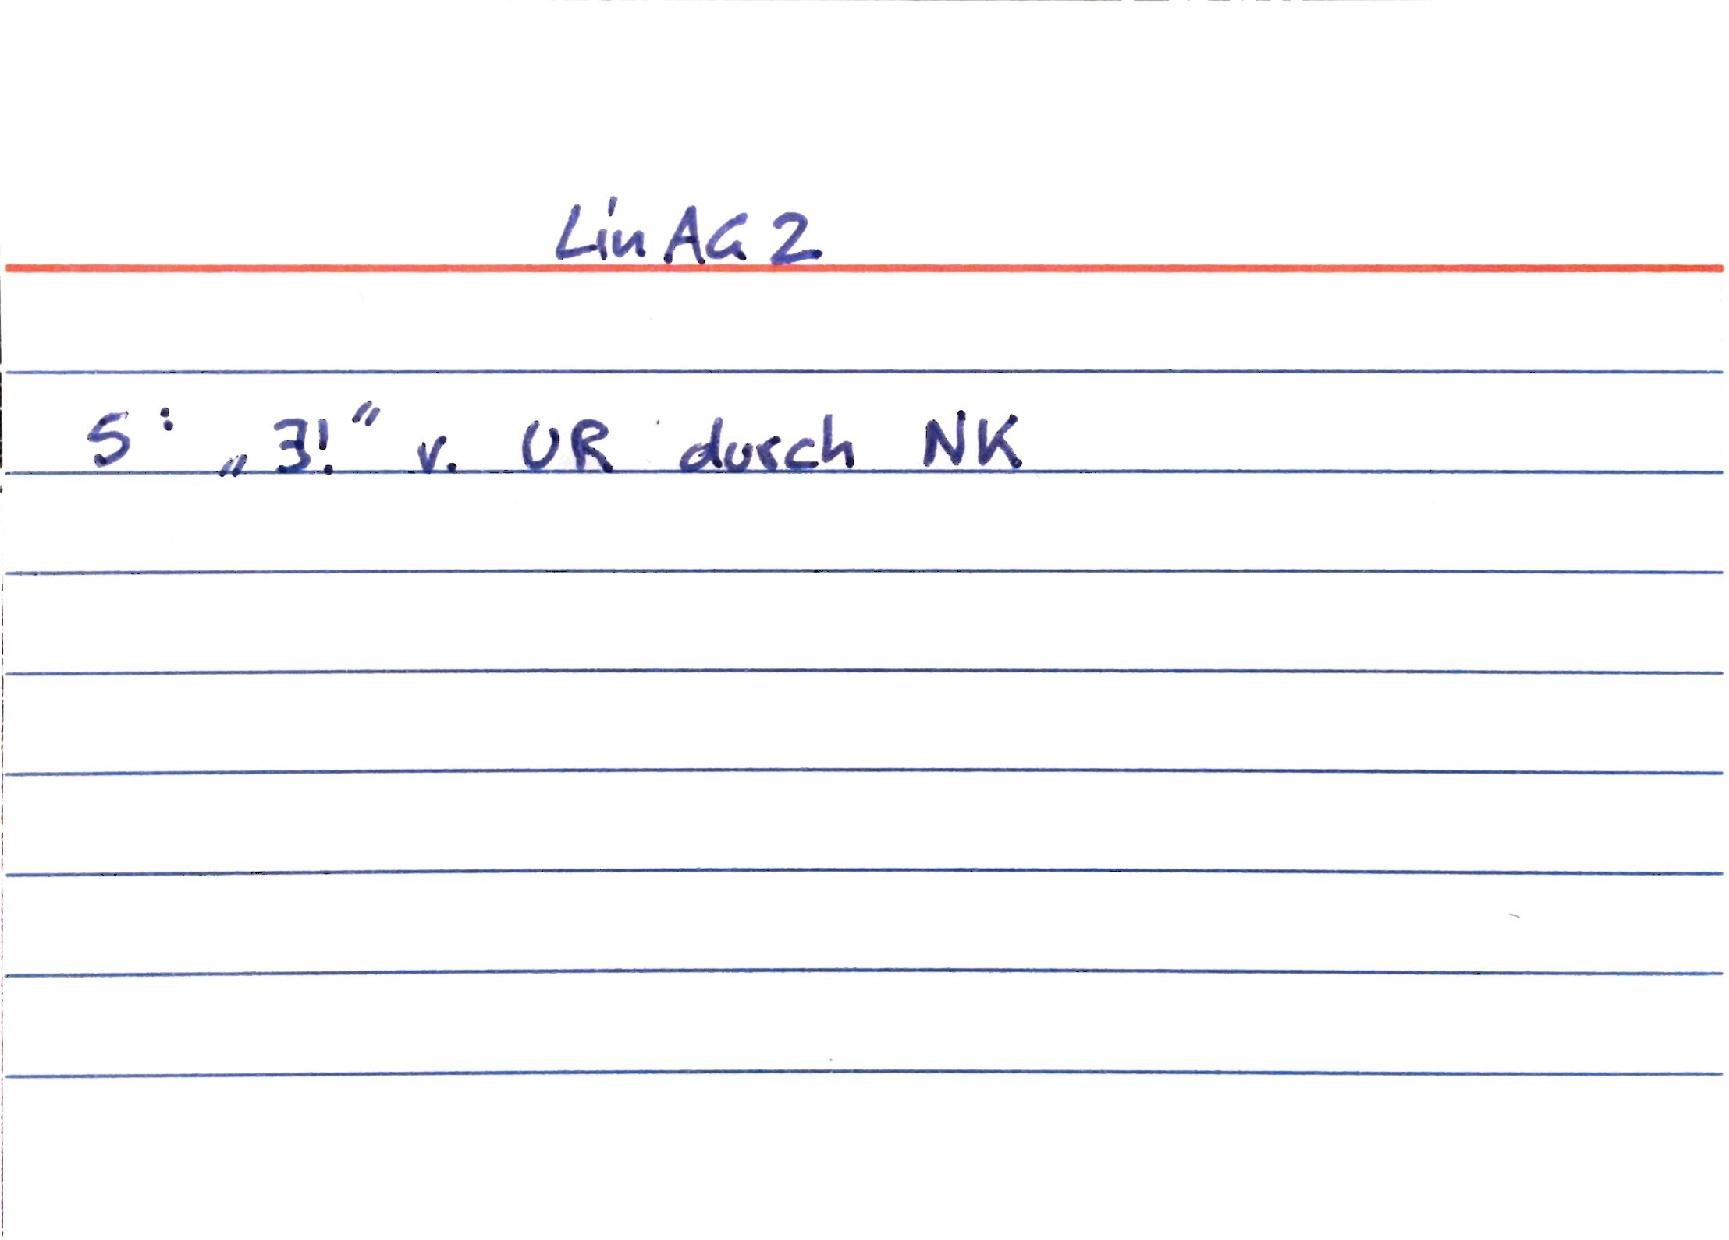 Lin AG 2
S: „∃!“ v. UR durch NK